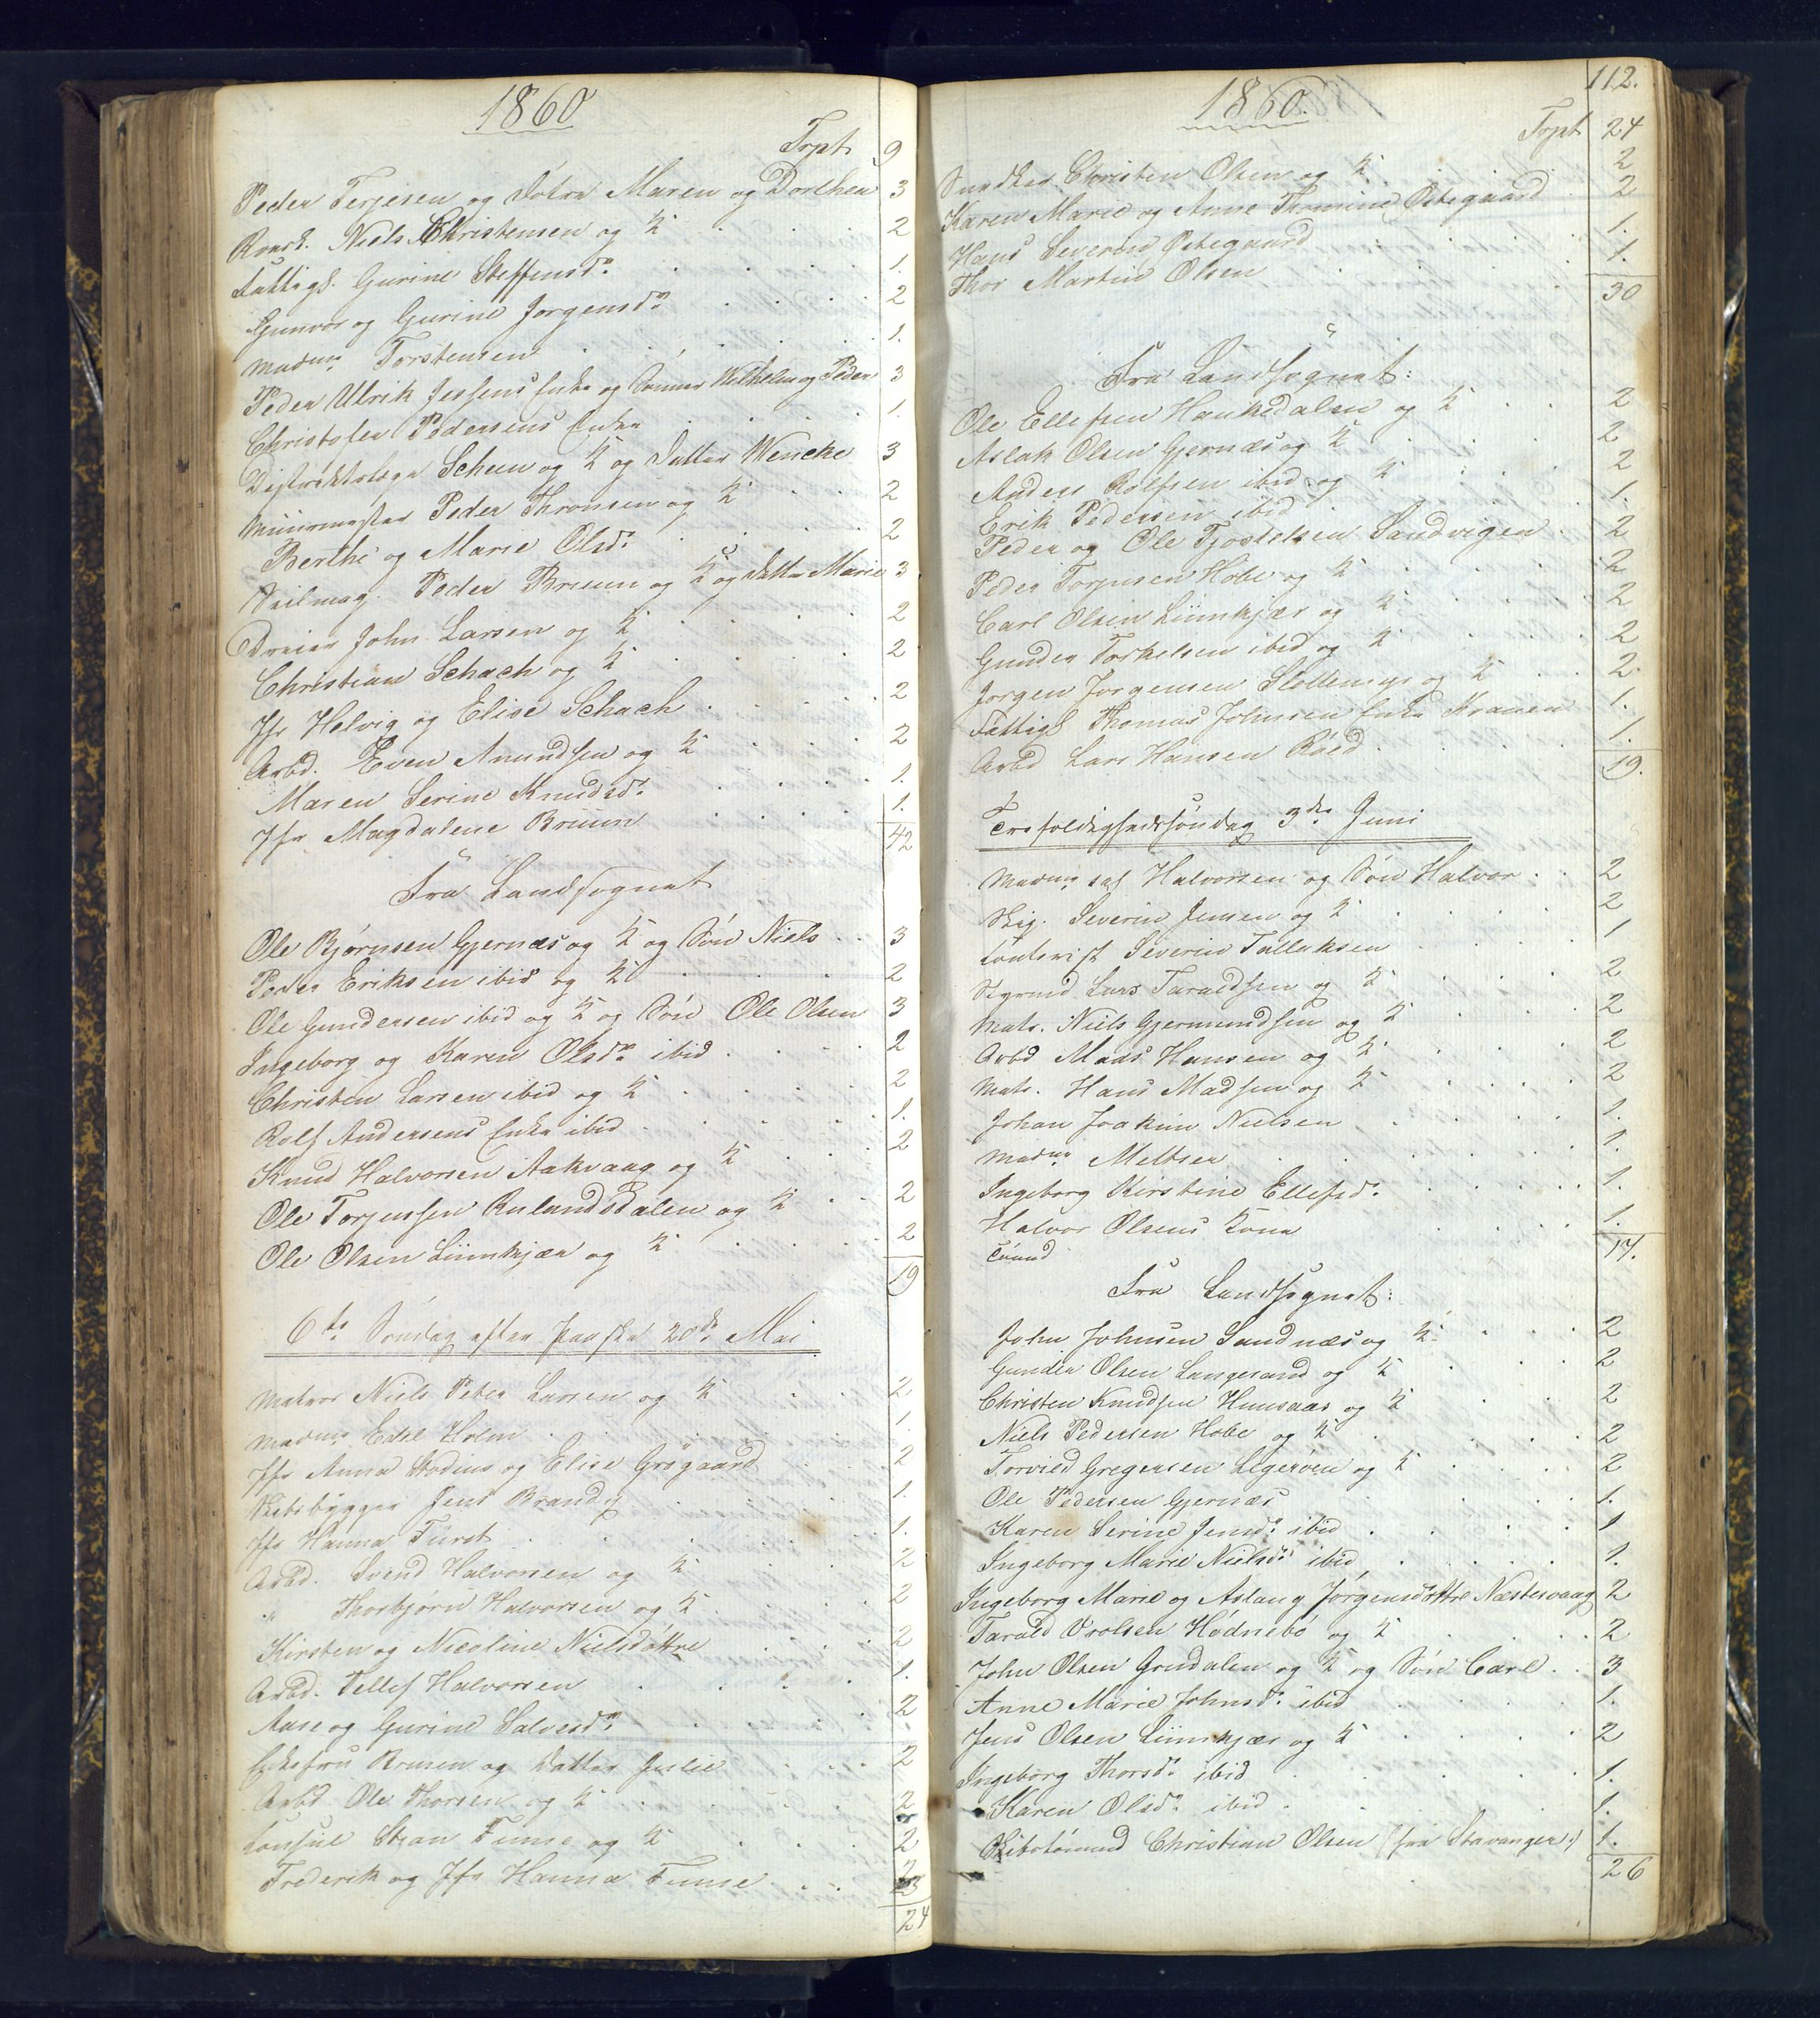 1860
Trpt. 9
Peder Terjesen og Døtre Maren og Dorthea 3
Niels Christensen og K . . . 2
Fattigl. Gurine Steffensdr. . . . 1.
Gunvor og Gurine Jørgensdr. . . . 2
Madme Torstensen . . . 1.
Peder Ulrik Jessens Enke og Sønner Wilhelm og Peder 3
Christofer Pedersens Enke . . . 1.
Distriktslæge Scheen og K og Datter Wencke 3
Muurmester Peder Thronsen og K . . 2
Berthe og Marie Olsdr. . . . 2
Seilmag. Peder Bruun og K og Datter Marie 3
Dreier John Larsen og K . . . 2
Christian Schach og K . . . 2
Jfr Helvig og Elise Schach . . . 2
Arbd. Even Amundsen og K . . . 2
Maren Serine Knudsdr. . . . 1.
Jfr Magdalene Bruun . . . 1.
42
Fra Landsognet
Ole Bjørnsen Gjernæs og K og Søn Niels . . 3
Peder Eriksen ibid og K . . . 2
Ole Gundersen ibid og K og Søn Ole Olsen 3
Ingeborg og Karen Olsdr. ibid . . . 2
Christen Larsen ibid og K . . . 2
Rolf Andersens Enke ibid . . . 1.
Knud Halvorsen Aakvaag og K . . . 2
Ole Torjussen Rulandsdalen og K . . 2
Ole Olsen Liimkjær og K . . . 2
19
6te Søndag efter Paaske 20de Mai
Matros Niels Peter Larsen og K . . . 2
Madme Edel Holm . . . 1.
Jfr Anna Stodius og Elise Grøgaard . . 2
Skibsbygger Jens Brandt . . . 1.
Jfr Hanna Fürst . . . 1.
Arbd. Svend Halvorsen og K . . . 2
" Thorbjørn Halvorsen og K . . . 2
Kirsten og Nicoline Nielsdøttre . . . 2
Arbd. Tellef Halvorsen . . . 1.
Aase og Gurine Salvesdr. . . . 2
Enkefru Boysen og Datter Julie . . . 2
Arbd. Ole Thorsen og K . . . 2
Consul Stean Tunse og K . . . 2
Frederik og Jfr Hanna Tunse . . . 2
24
1860. 112.
Trpt 24
Christen Olsen og K . . . 2
Karen Marie og Anne Thomine Østegaard . 2
Hans Severin Østegaard . . . 1.
Thor Martin Olsen . . . 1.
30
Fra Landsognet:
Ole Ellefsen Haukedalen og K . . . 2
Aslak Olsen Gjernæs og K . . . 2
Anders Rolfsen ibid og K . . . 2
Erik Pedersen ibid . . . 1.
Peder og Ole Tjostelsen Sandvigen . 2
Peder Torjusen Hobe og K . . . 2
Carl Olsen Liimkjær og K . . . 2
Gunder Torkelsen ibid og K . . . 2
Jørgen Jørgensen Slottemyr og K . . 2.
Fattigl Thomas Johnsen Enke Kranen 1.
Arbd Lars Hansen Røed . . . 1.
19.
Trefoldighedssøndag 3die Juni
Madme Halvorsen og Søn Halvor . . 2
Skip. Severin Jensen og K . . . 2
Contorist Severin Tallaksen . . . 1
Styrmd Lars Taraldsen og K . . . 2
Matr. Niels Gjermundsen og K . . . 2
Arbd Mads Hansen og K . . . 2
Matr. Hans Madsen og K . . . 2
Johan Joakim Nielsen . . . 1.
Madme Meltzer . . . 1.
Ingeborg Kirstine Ellefsdr. . . . 1.
Halvor Olsens Kone . . . 1.
17.
Fra Landsognet:
John Johnsen Sandnæs og K . . . 2
Gunder Olsen Langesand og K . . . 2
Christen Knudsen Hunsaas og K . . . 2
Niels Pedersen Hobe og K . . . 2
Torvild Gregersen Legerøen og K . . . 2
Ole Pedersen Gjernæs . . . 1.
Karen Serine Jensdr. ibid . . . 1
Ingeborg Marie Nielsdr ibid . . . 1.
Ingeborg Marie og Aslaug Jørgensdøttre Næstesvaag 2
Tarald Orolsen Hødnebø og K . . . 2
John Olsen Grudalen og K og Søn Carl . . 3
Anne Marie Johnsdr. ibid . . . 1.
Jens Olsen Liimkjær og K . . . 2
Ingeborg Thorsdr. ibid . . . 1.
Karen Olsdr. ibid . . . 1.
Skibstømmd Christian Olsen (fra Stavanger) 1.
26